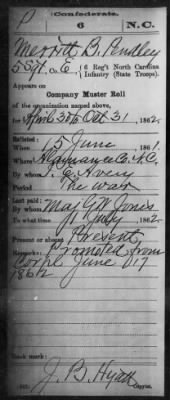 P
Confederate.
6 N.C.
Merritt B. Pendley
5 Sgt. Co. E, 6 Reg't North Carolina
Infantry (State Troops).
Appears on
Company Muster Roll
of the organization named above,
for April 30 to Oct 31, 1862.
Enlisted:
When 5 June, 1861.
Where Alamance Co. N.C.
By whom I. E. Avery
Period The War
Last paid:
By whom Maj G W Jones
To what time 1 July, 1862.
Present or absent Present
Remarks: Promoted from
Corpl June 17
1862
Book mark:
J. B. Hyatt
Copyist.